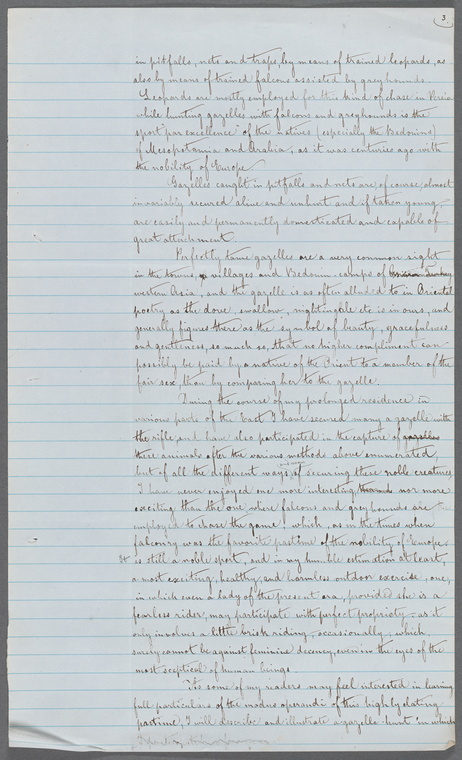 3.
in pitfalls, nets and traps, by means of trained leopards, as
also by means of trained falcons assisted by greyhounds.
Leopards are mostly employed for this kind of chase in Persia
while hunting gazelles with falcons and greyhounds is the
sport "par excellence" of the natives (especially the Bedouins)
of Mesopotamia and Arabia, as it was centuries ago with
the nobility of Europe.
Gazelles caught in pitfalls and nets are, of course, almost
invariably secured alive and unhurt and if taken young,
are easily and permanently domesticated and capable of
great attachment.
Perfectly tame gazelles are a very common sight
in the towns, villages and Bedouin-camps of
western Asia, and the gazelle is as often alluded to in Oriental
poetry as the dove, swallow, nightingale etc is in ours, and
generally figures there as the symbol of beauty, gracefulness
and gentleness, so much so, that no higher compliment can
possibly be paid by a native of the Orient to a member of the
fair sex, than by comparing her to the gazelle.
During the course of my prolonged residence in
various parts of the East I have secured many a gazelle with
the rifle and have also participated in the capture of gazelles
these animals after the various methods above enumerated,
but of all the different ways of securing these noble creatures
I have never enjoyed one more interesting nor more
exciting than the one where falcons and greyhounds are
employed to chase the game, which, as in the times when
falconry was the favorite pastime of the nobility of Europe
is still a noble sport, and in my humble estimation at least,
a most exciting, healthy, and harmless outdoor exercise, one,
in which even a lady of the present era, provided she is a
fearless rider, may participate with perfect propriety, as it
only involves a little brisk riding, occasionally, which,
surely cannot be against feminine decency, even in the eyes of the
most sceptical of human beings.
As some of my readers may feel interested in learning
full particulars of the modus operandi of this highly elating
pastime, I will describe and illustrate a gazelle-hunt in which